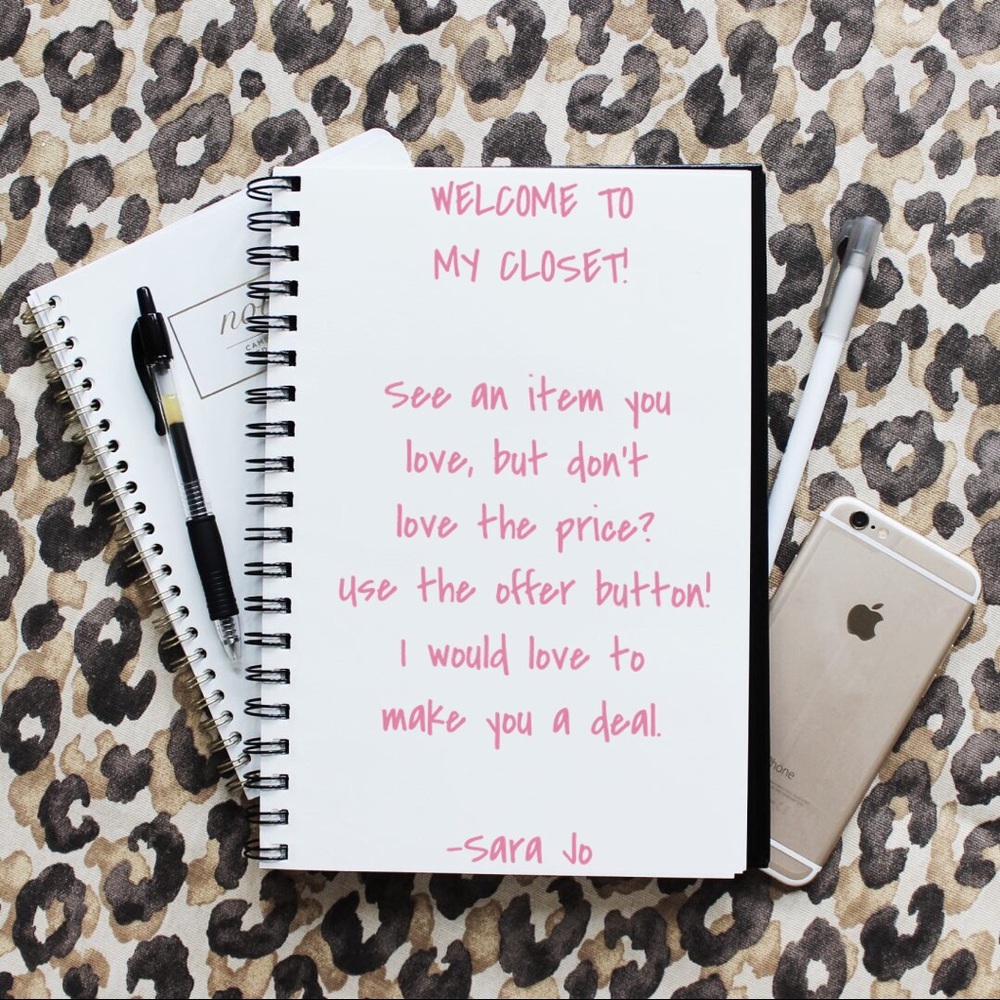 WELCOME TO
MY CLOSET!
See an item you
love, but don't
love the price?
Use the offer button!
I would love to
make you a deal.
-Sara Jo